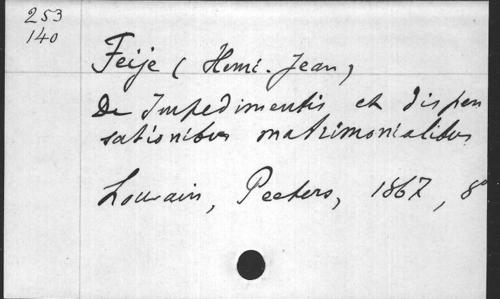 253
140
Feije (Henri-Jean)
De Impedimentis et dispen
sationibus matrimonialibus
Louvain, Peeters, 1867, 8°